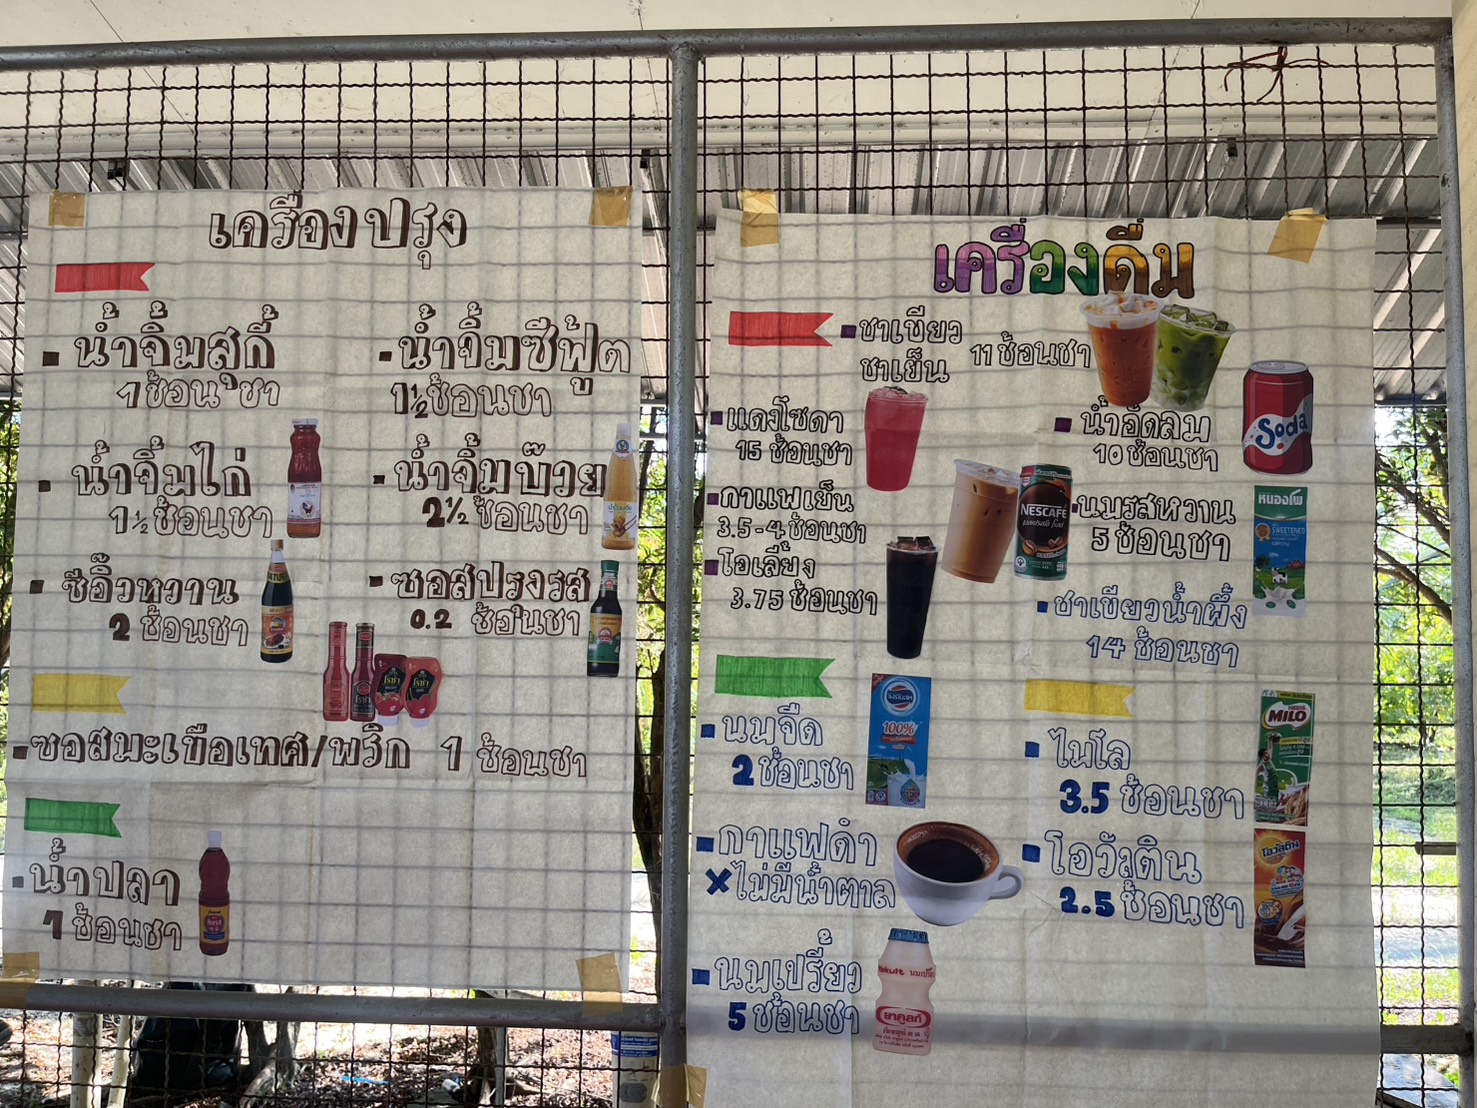 เครื่องปรุง
น้ำจิ้มสุกี้
1 ช้อนชา
น้ำจิ้มซีฟู้ด
1 1/2 ช้อนชา
น้ำจิ้มไก่
1 1/2 ช้อนชา
น้ำจิ้มบ๊วย
2 1/2 ช้อนชา
ซีอิ๊วหวาน
2 ช้อนชา
ซอสปรุงรส
0.2 ช้อนชา
ซอสมะเขือเทศ/พริก 1 ช้อนชา
น้ำปลา
1 ช้อนชา
เครื่องดื่ม
ชาเขียว
ชาเย็น
11 ช้อนชา
แดงโซดา
15 ช้อนชา
น้ำอัดลม
10 ช้อนชา
Soda
กาแฟเย็น
3.5-4 ช้อนชา
NESCAFÉ
นมรสหวาน
5 ช้อนชา
หนองโพ
SWEETENED
โอเลี้ยง
3.75 ช้อนชา
ชาเขียวน้ำผึ้ง
14 ช้อนชา
นมจืด
2 ช้อนชา
100%
ไมโล
3.5 ช้อนชา
Nestlé
MILO
กาแฟดำ
×ไม่มีน้ำตาล
โอวัลติน
2.5 ช้อนชา
โอวัลติน
นมเปรี้ยว
5 ช้อนชา
Yakult
ยาคูลท์